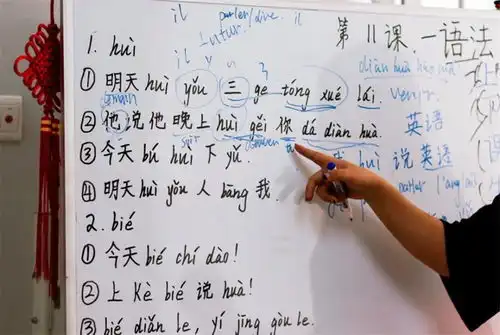 il parler/dire. il
futur.
第 11 课、一语法
1. huì
il y
diàn huà hào mǎ
① 明天 huì yǒu 三 ge tóng xué lái.
venir.
demain
② 他说他晚上 huì gěi 你 dá diàn huà.
英语
soir
③ 今天 bú huì 下 yǔ.
huì 说英语
parler
④ 明天 huì yǒu 人 bāng 我.
2. bié
① 今天 bié chí dào!
② 上 Kè bié 说 huà!
③ bié diǎn le, yí jīng gòu le.